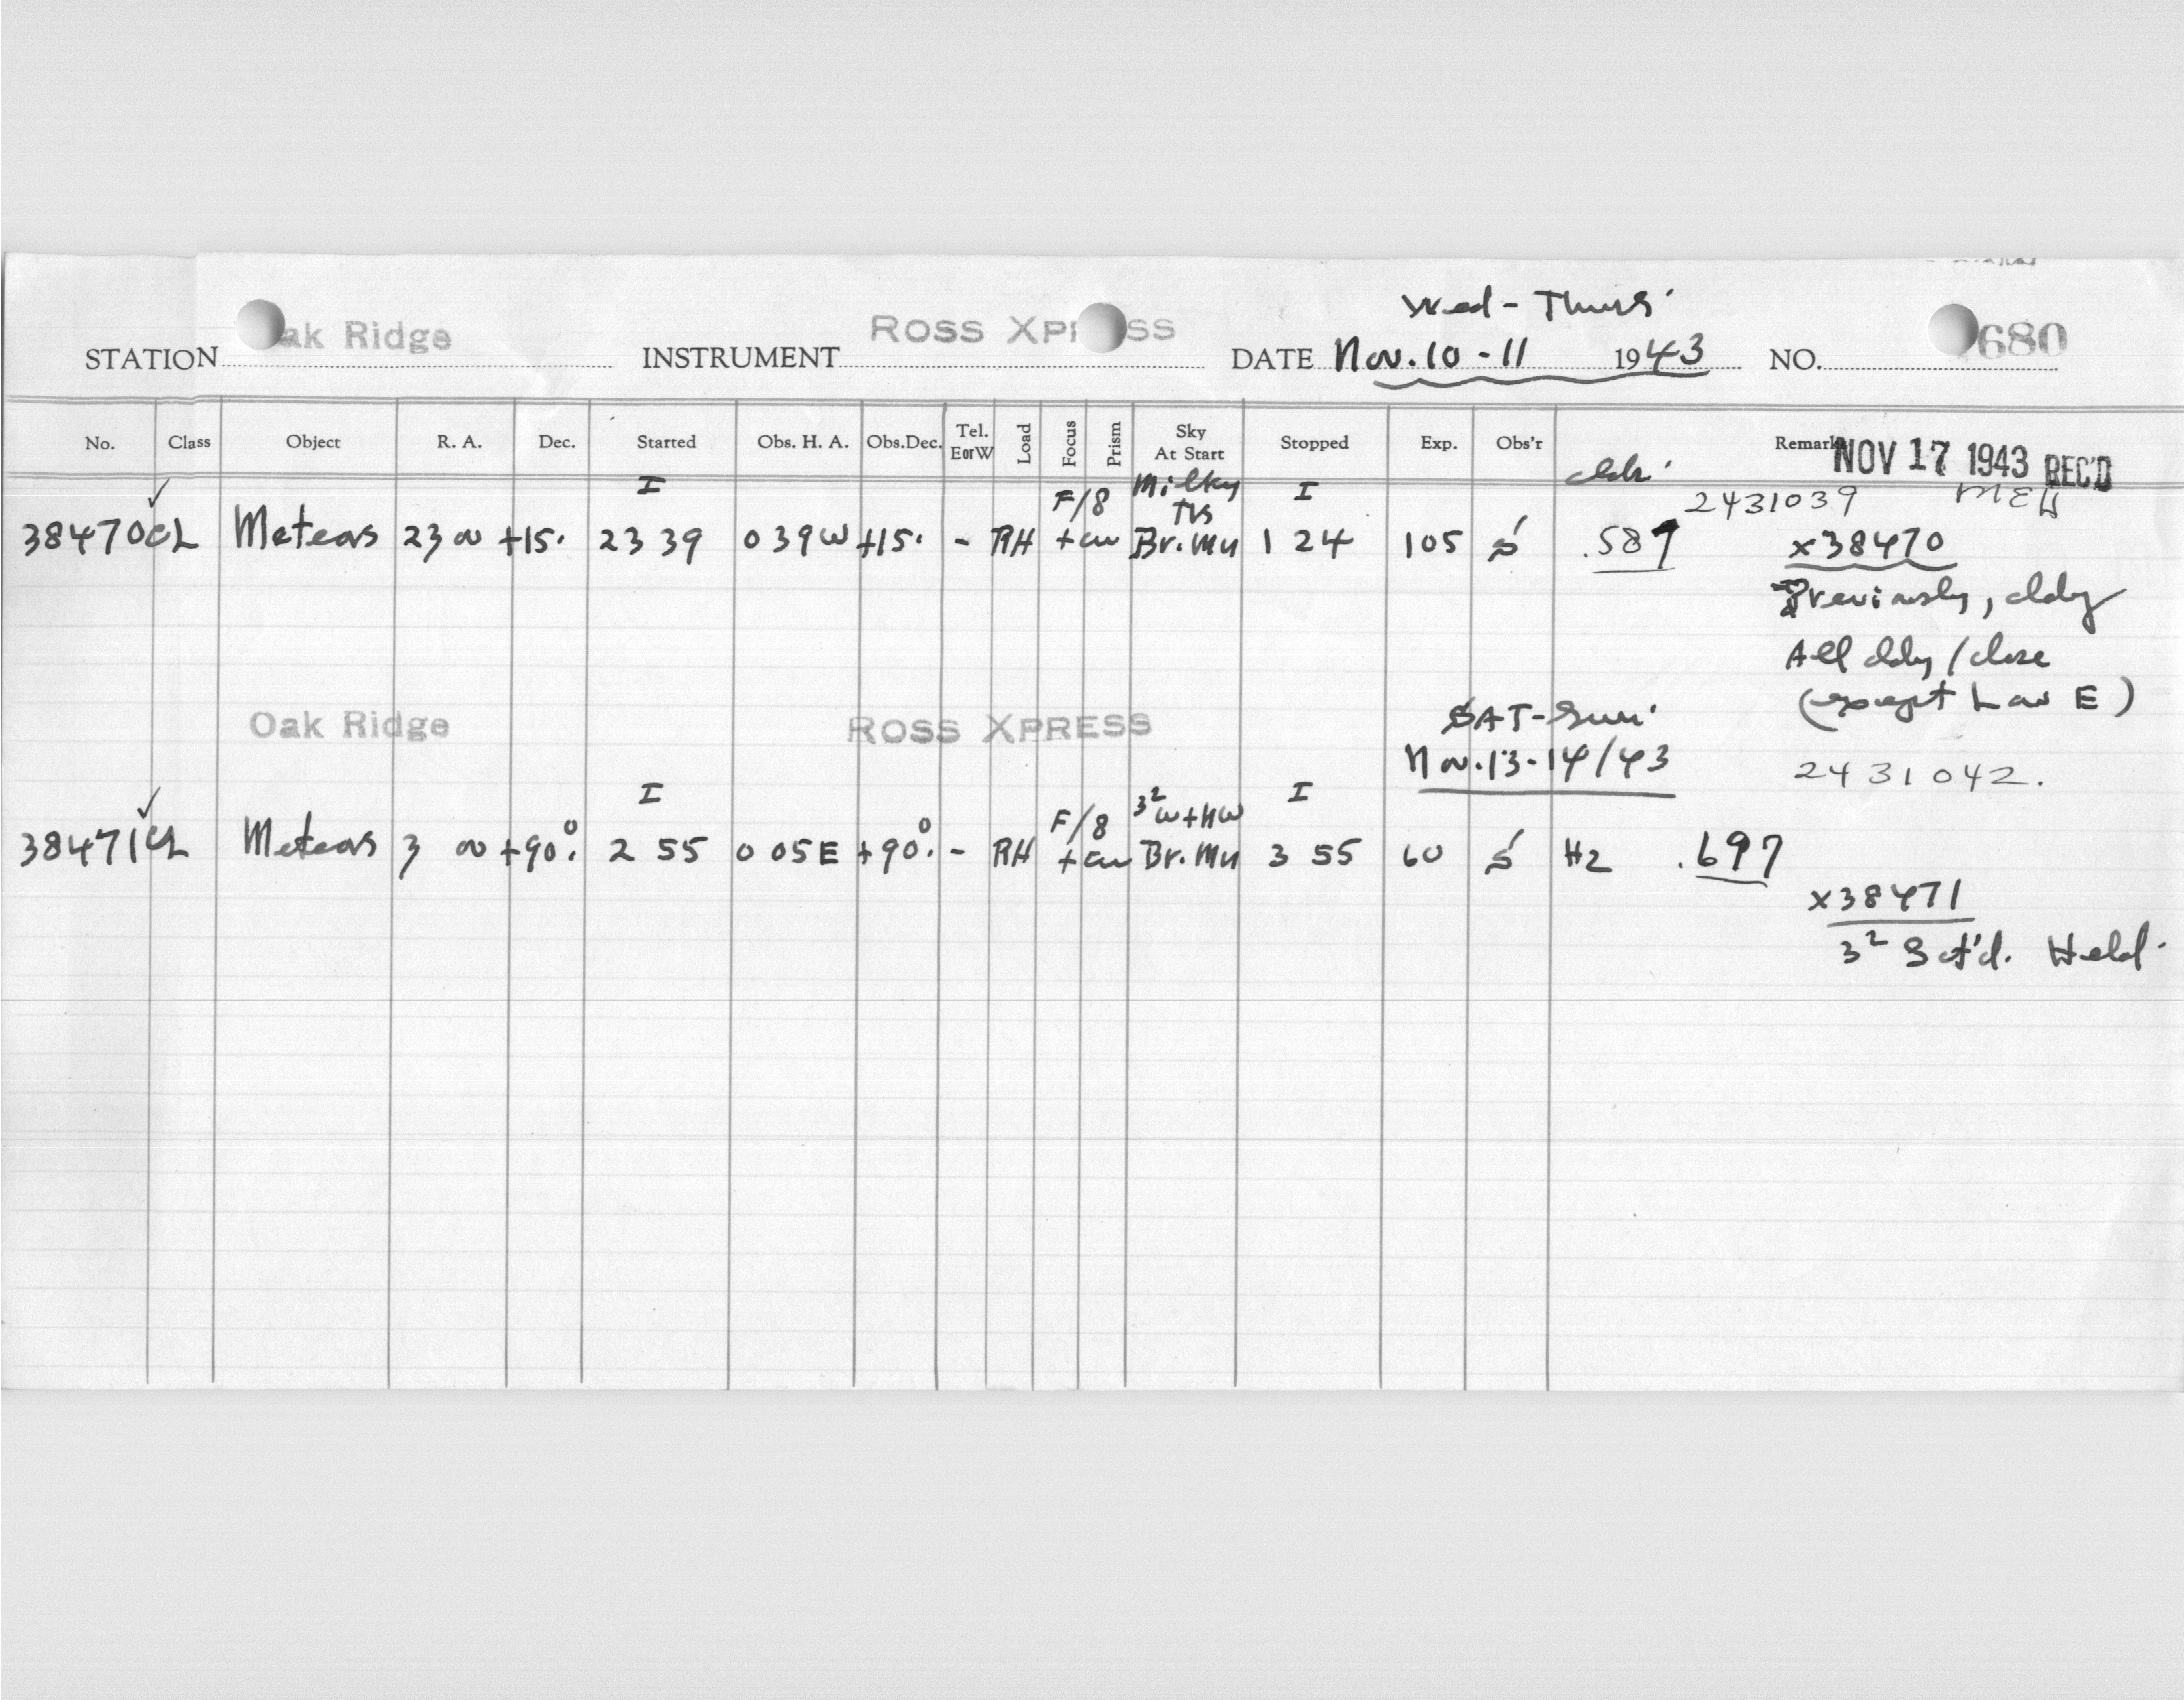 Wed - Thurs.
STATION Oak Ridge INSTRUMENT ROSS XPRESS DATE Nov. 10 - 11 1943 NO. 680
No. Class Object R. A. Dec. Started Obs. H. A. Obs.Dec. Tel. EorW Load Focus Prism Sky At Start Stopped Exp. Obs'r Remarks NOV 17 1943 REC'D
I F/8 Milky I 2431039 MEH
38470 CL Meteors 23 00 +15. 23 39 0 39 W +15. - RH Br. Mn 1 24 105 S .589 x38470
Previously, cldy
All cldy / close
(except Low E)
Oak Ridge ROSS XPRESS SAT - Sun.
Nov. 13 - 14/43 2431042.
I F/8 3² W + NW I
38471 CL Meteors 3 00 +90°. 2 55 0 05 E +90°. - RH Br. Mn 3 55 60 S H2 .697
x38471
3² Sct'd. Held.